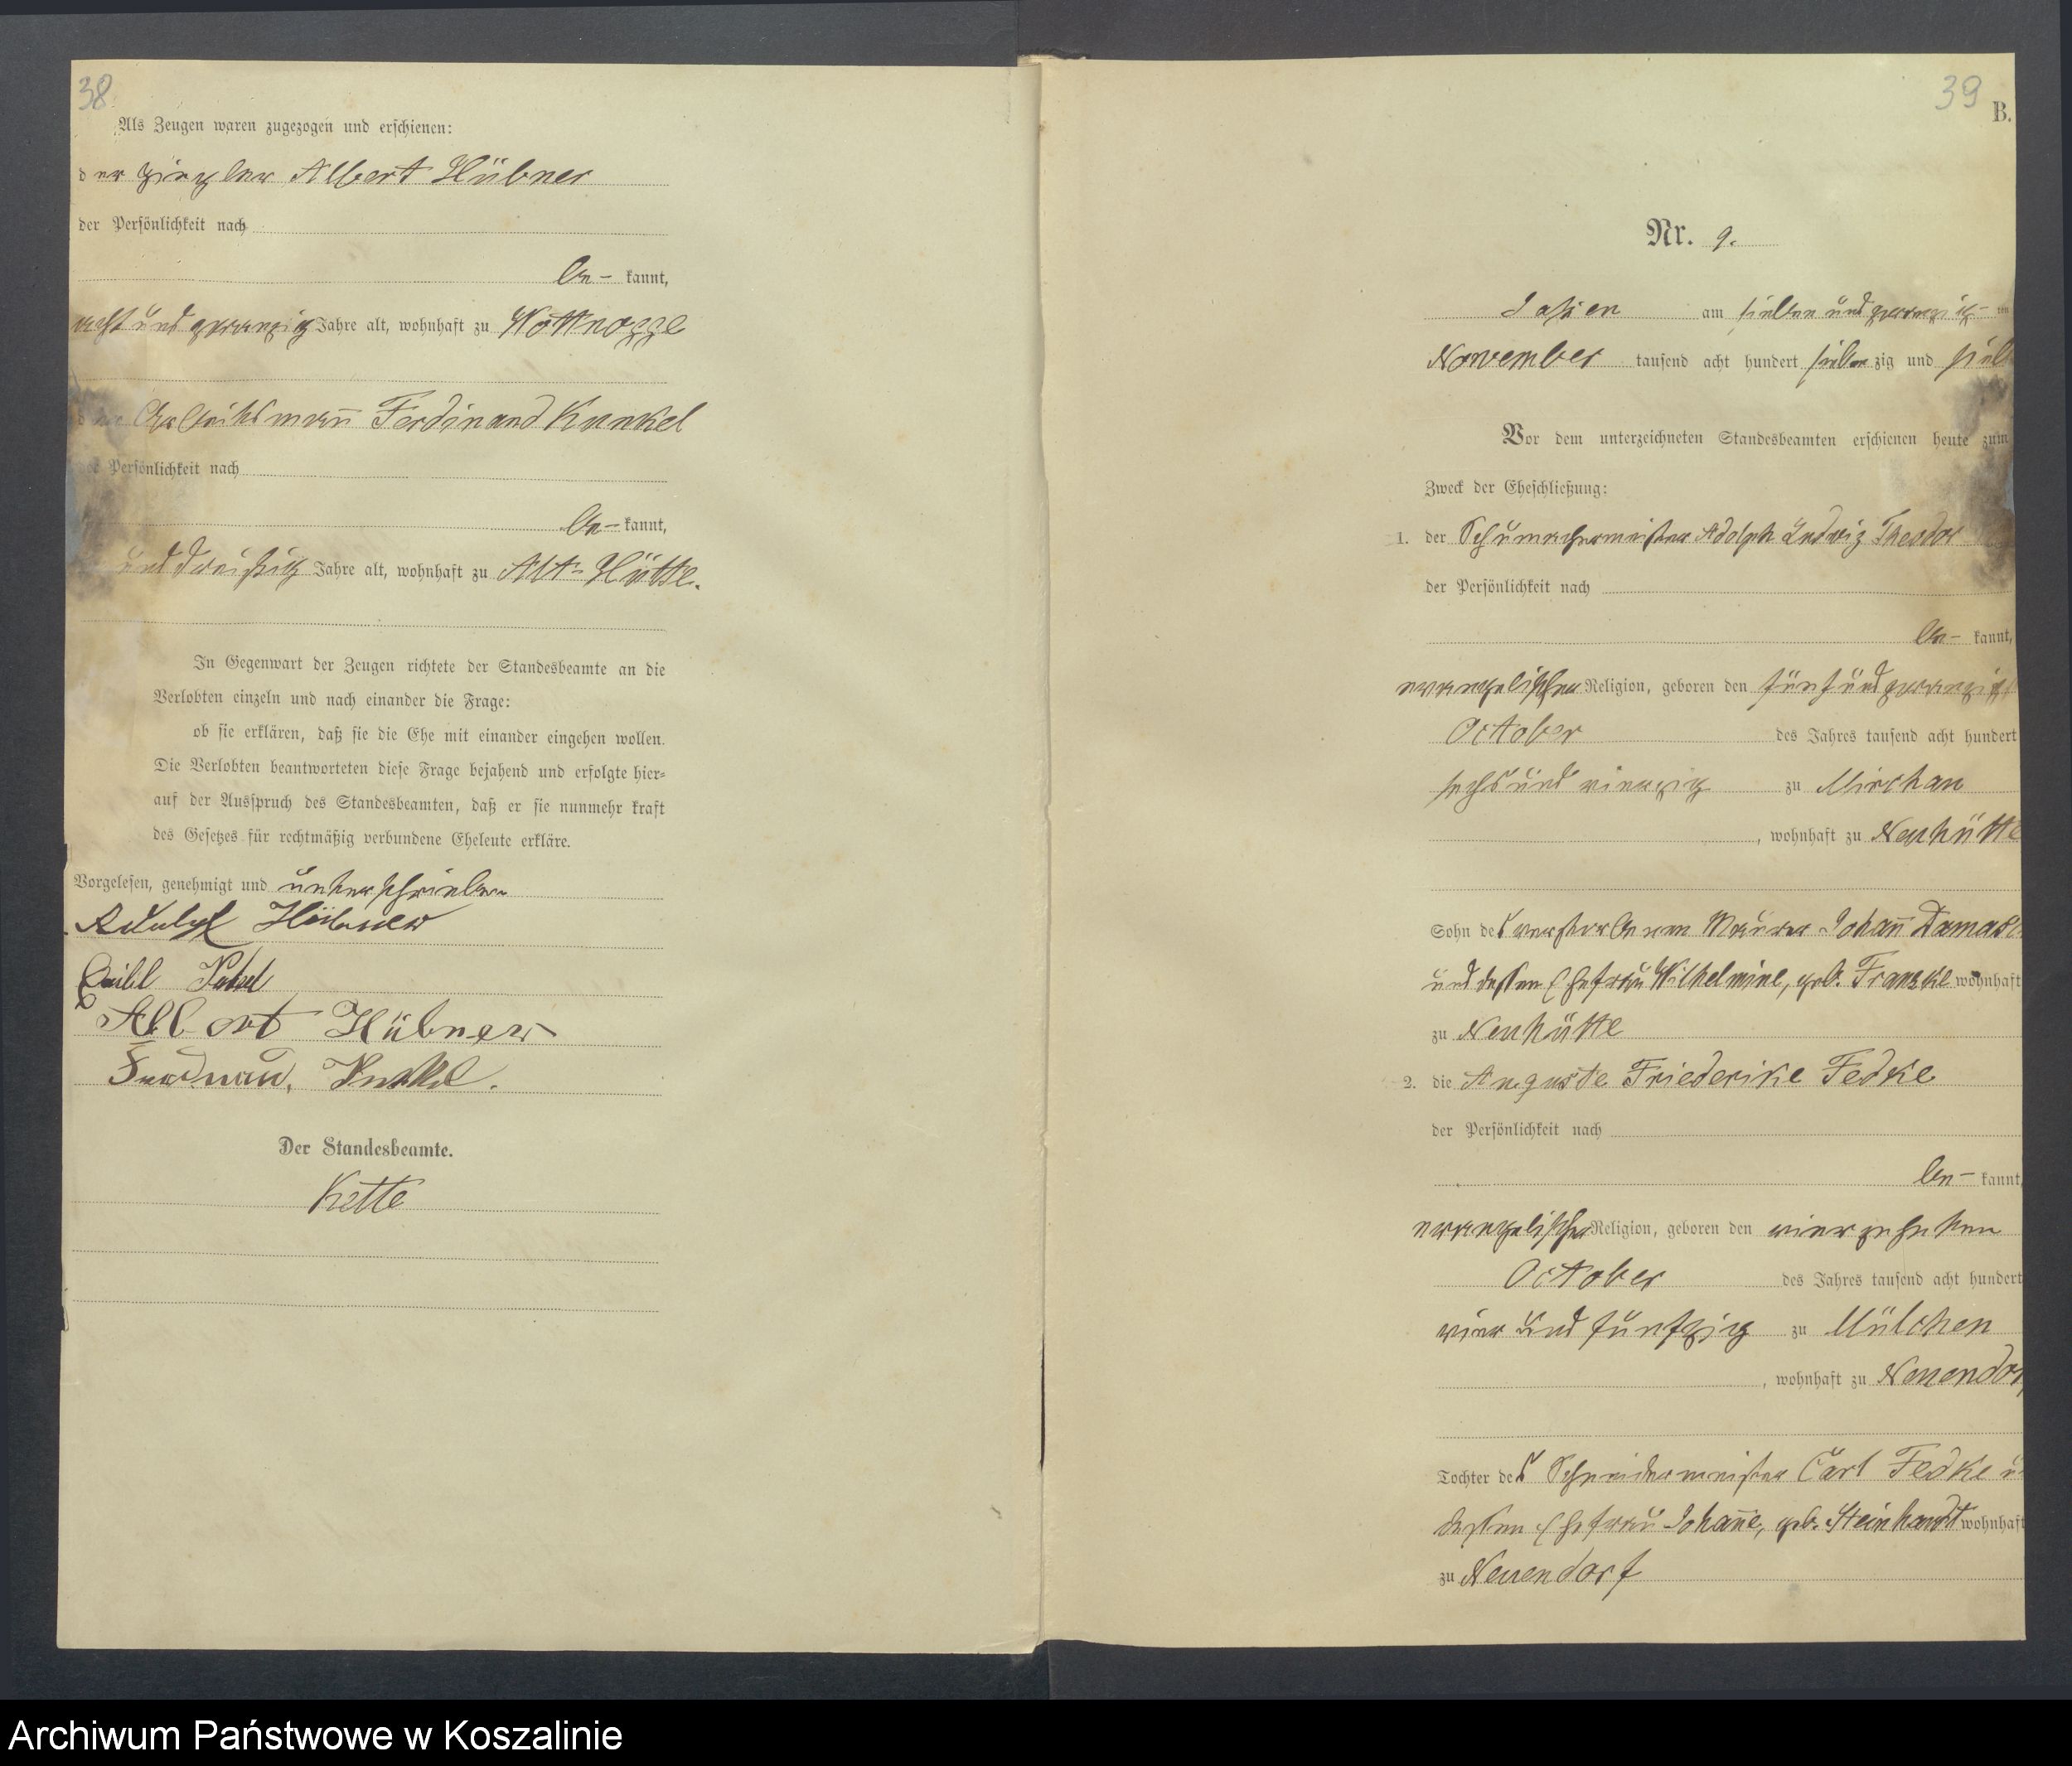 38
Als Zeugen waren zugezogen und erschienen:
der Ziegler Albert Hübner
der Persönlichkeit nach
be- kannt,
acht und zwanzig Jahre alt, wohnhaft zu Wottnogge
der Ferdinand Kunkel
der Persönlichkeit nach
be- kannt,
und dreißig Jahre alt, wohnhaft zu Alt-Hütte.
In Gegenwart der Zeugen richtete der Standesbeamte an die
Verlobten einzeln und nach einander die Frage:
ob sie erklären, daß sie die Ehe mit einander eingehen wollen.
Die Verlobten beantworteten diese Frage bejahend und erfolgte hier-
auf der Ausspruch des Standesbeamten, daß er sie nunmehr kraft
des Gesetzes für rechtmäßig verbundene Eheleute erkläre.
Vorgelesen, genehmigt und unterschrieben
Adolph Hübner
Albert Hübner
Kunkel.
Der Standesbeamte.
Kette
39
B.
Nr. 9.
Jassen am sieben und zwanzig- ten
November tausend acht hundert sieben zig und sieb
Vor dem unterzeichneten Standesbeamten erschienen heute zum
Zweck der Eheschließung:
1. der Schumachermeister Adolph Ludwig Theodor
der Persönlichkeit nach
be- kannt,
evangelischer Religion, geboren den fünf und zwanzigst
October des Jahres tausend acht hundert
sechs und vierzig zu Mirchau
, wohnhaft zu Neuhütte
Sohn des verstorbenen Maurer Johann Damas
und dessen Ehefrau Wilhelmine, geb. Franzke wohnhaft
zu Neuhütte
2. die Auguste Friederike Fedke
der Persönlichkeit nach
be- kannt,
evangelischer Religion, geboren den vierzehnten
October des Jahres tausend acht hundert
vier und fünfzig zu Mülchen
, wohnhaft zu Neuendor
Tochter des Schneidermeister Carl Fedke u
dessen Ehefrau Johanne, geb. Steinhardt wohnhaft
zu Neuendorf
Archiwum Państwowe w Koszalinie